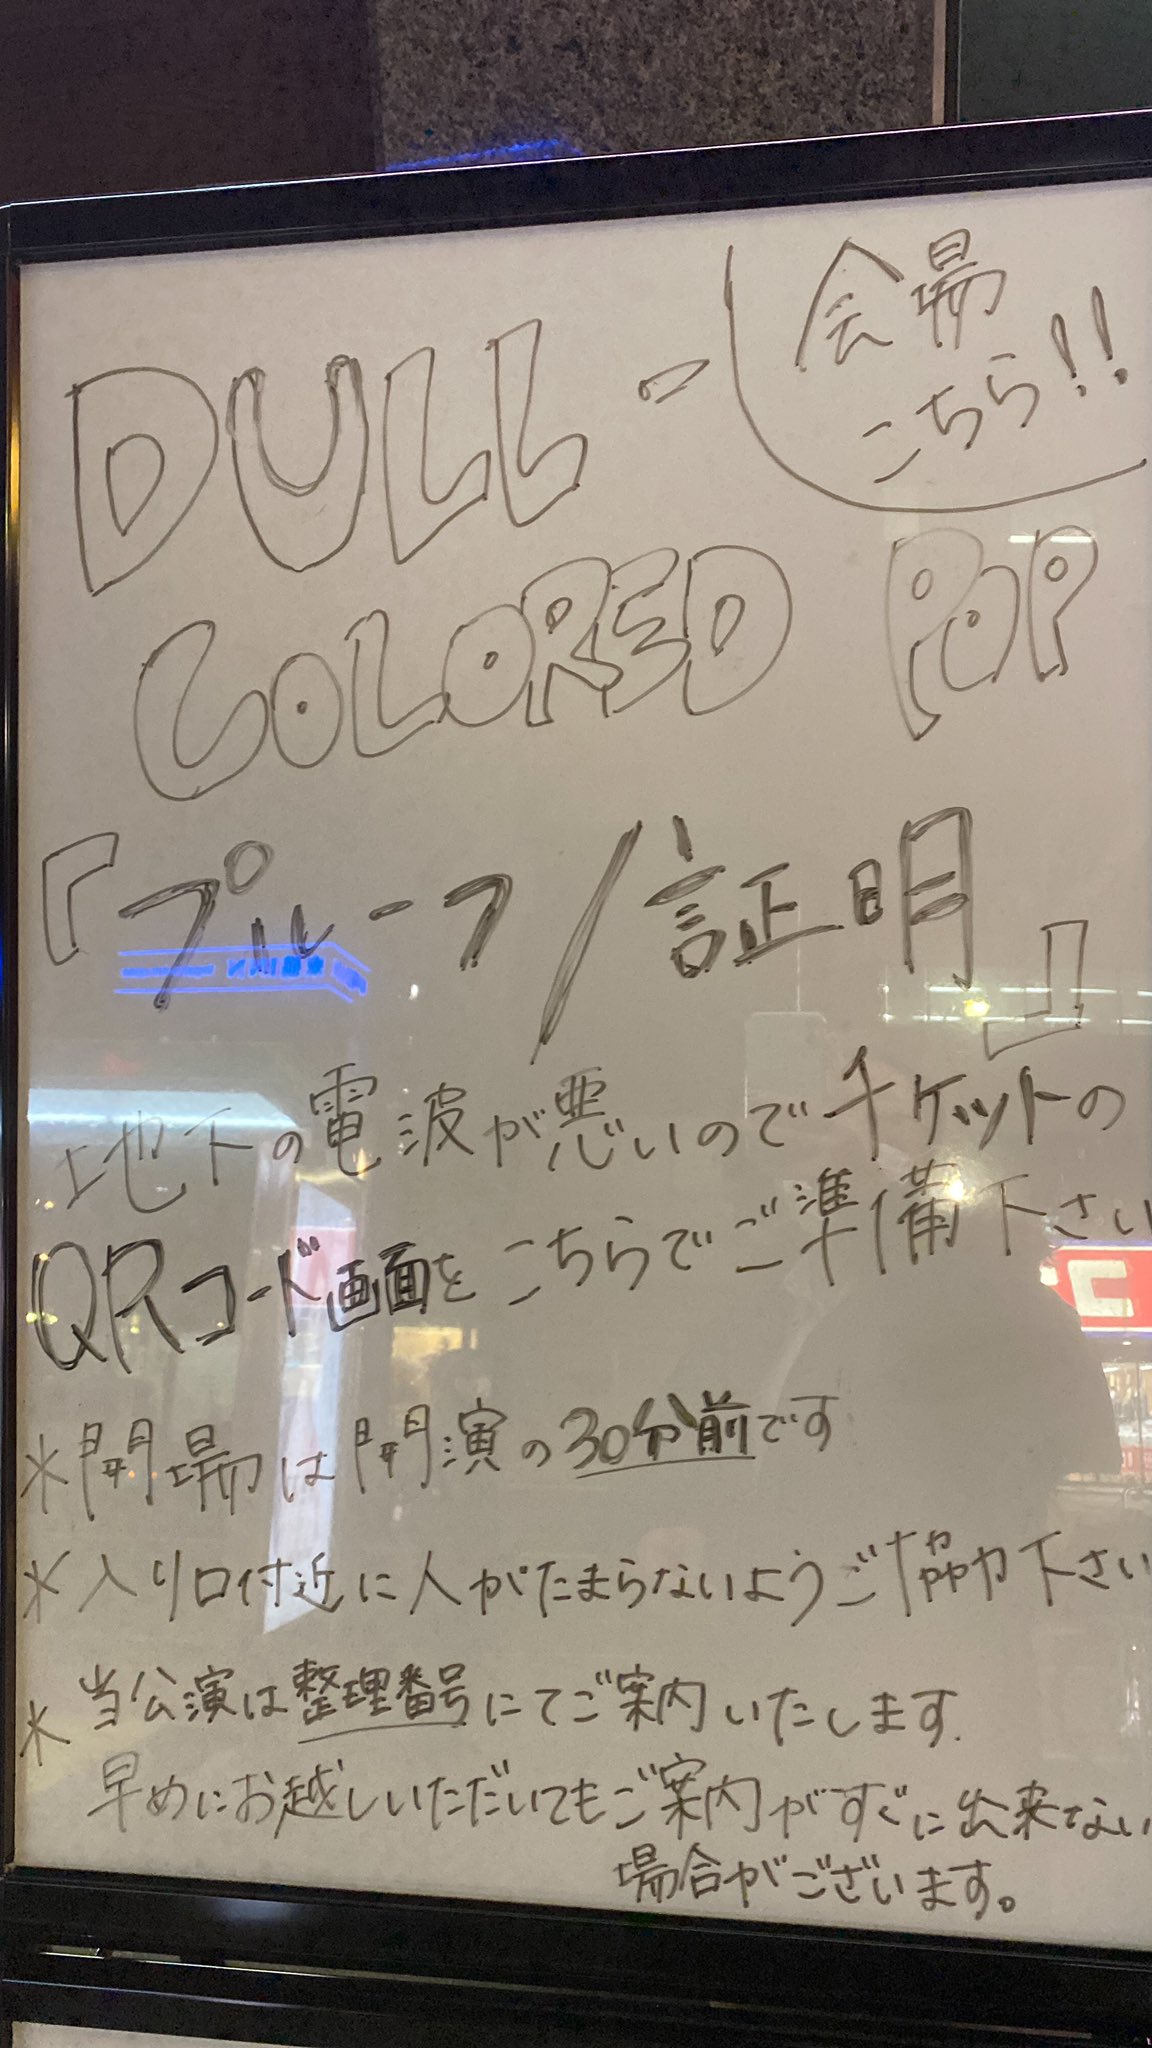 DULL-
会場
こちら!!
COLORED POP
『プルーフ/証明』
地下の電波が悪いのでチケットの
QRコード画面をこちらでご準備下さい
*開場は開演の30分前です
*入り口付近に人がたまらないようご協力下さい
*当公演は整理番号にてご案内いたします.
早めにお越しいただいてもご案内がすぐに出来ない
場合がございます。